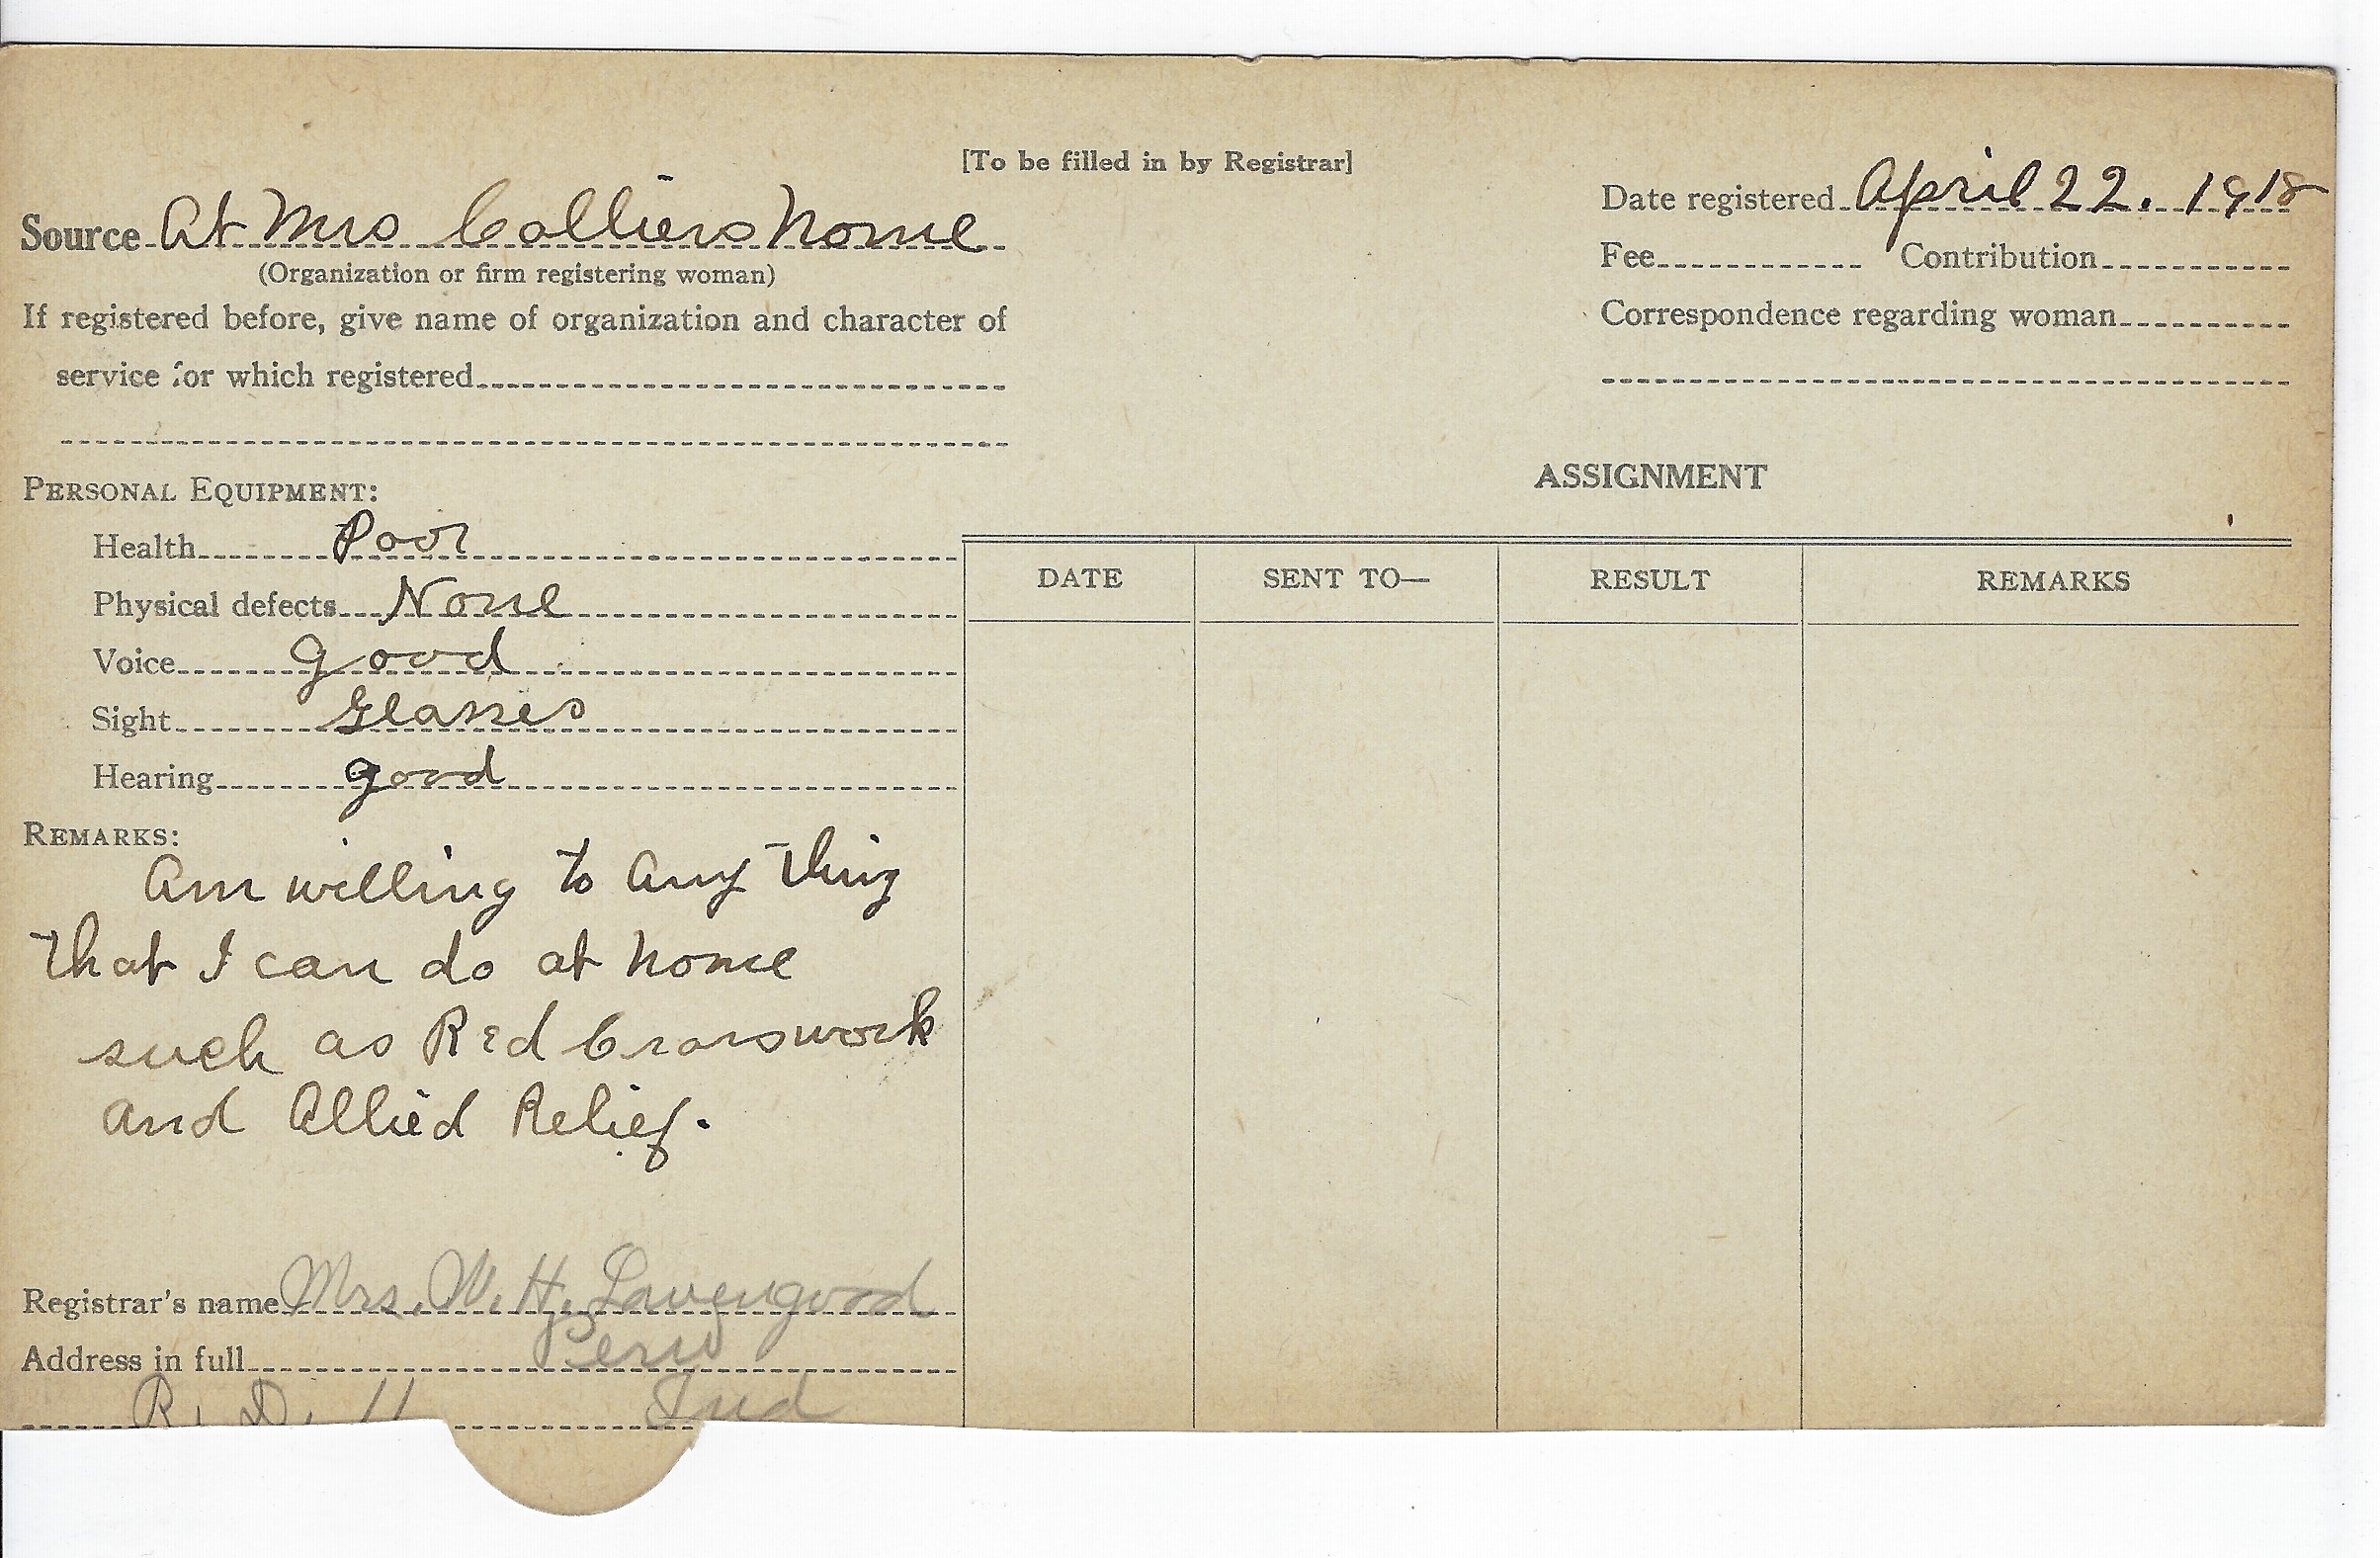 [To be filled in by Registrar]
Source At Mrs Colliers home
(Organization or firm registering woman)
If registered before, give name of organization and character of
service for which registered
Date registered April 22. 1918
Fee Contribution
Correspondence regarding woman
PERSONAL EQUIPMENT:
Health Poor
Physical defects None
Voice good
Sight Glasses
Hearing good
REMARKS:
Am willing to any thing
that I can do at home
such as Red Cross work
and Allied Relief.
Registrar's name Mrs. W. H. Lavengood
Address in full Peru
R. D. 11 Ind
ASSIGNMENT
DATE SENT TO— RESULT REMARKS